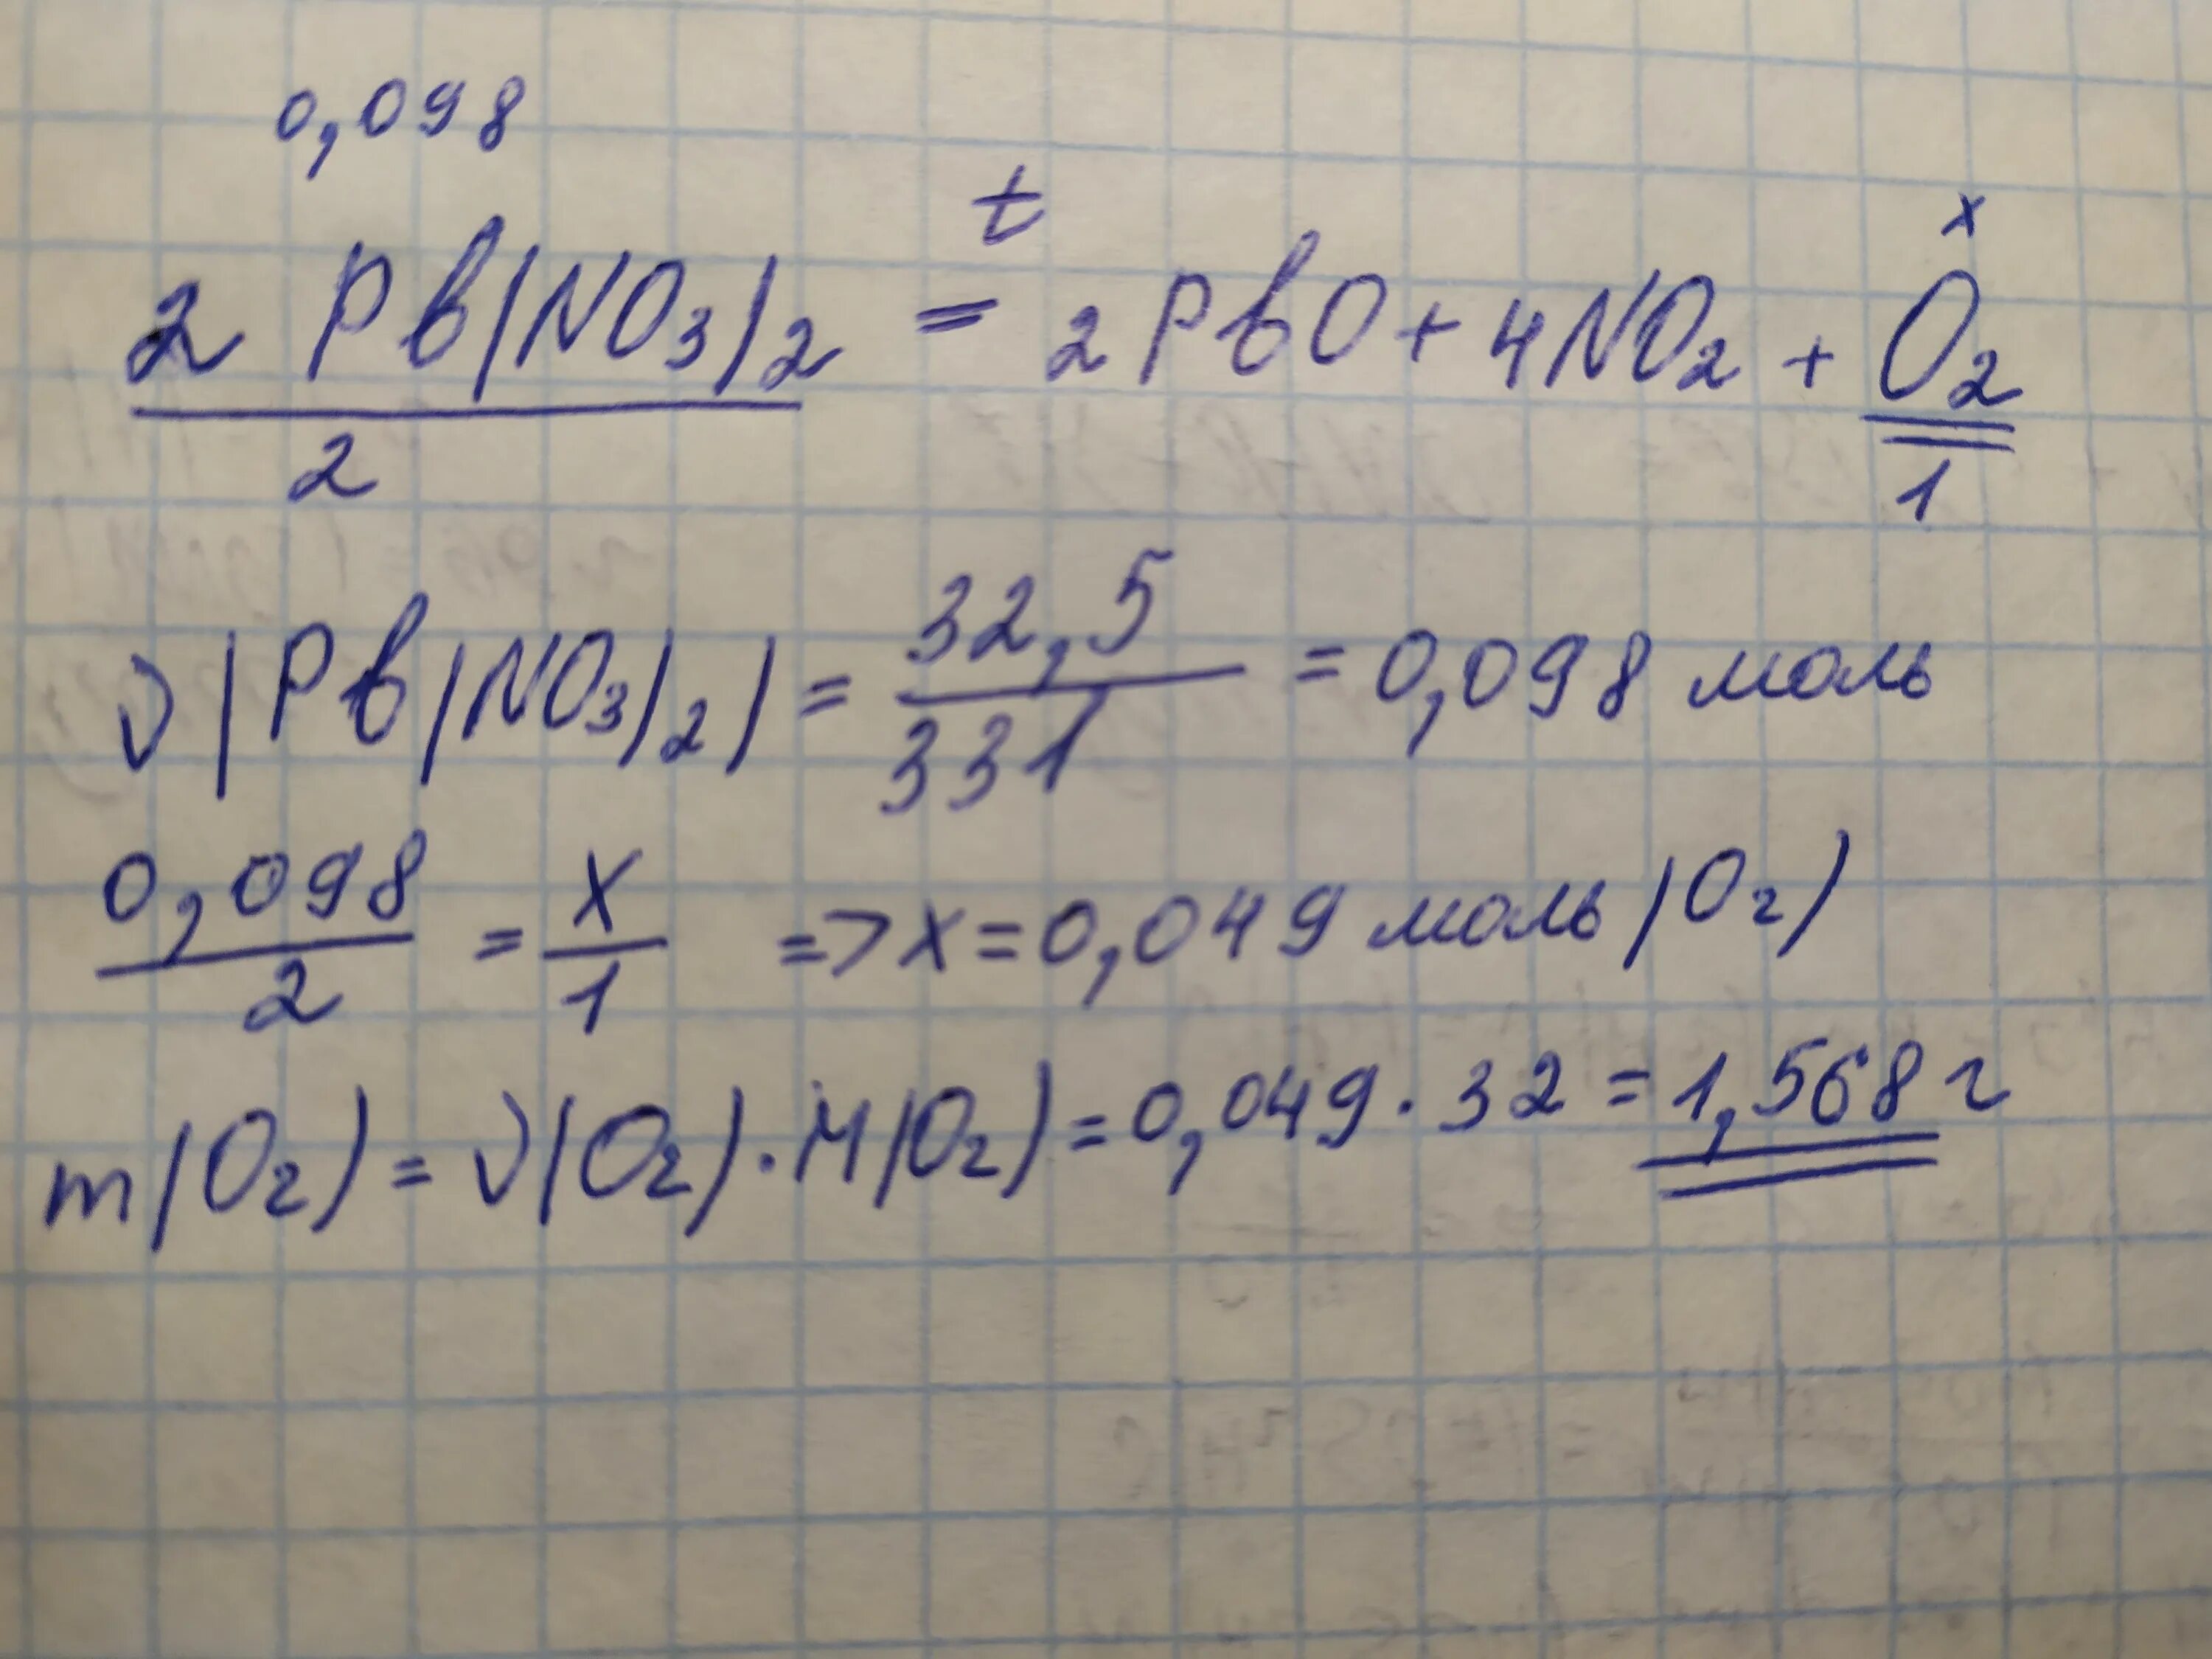 0,098
t x
2 Pb(NO3)2 = 2PbO + 4NO2 + O2
2 1
ν(Pb(NO3)2) = 32,5/331 = 0,098 моль
0,098/2 = x/1 => x = 0,049 моль (O2)
m(O2) = ν(O2) · M(O2) = 0,049 · 32 = 1,568 г